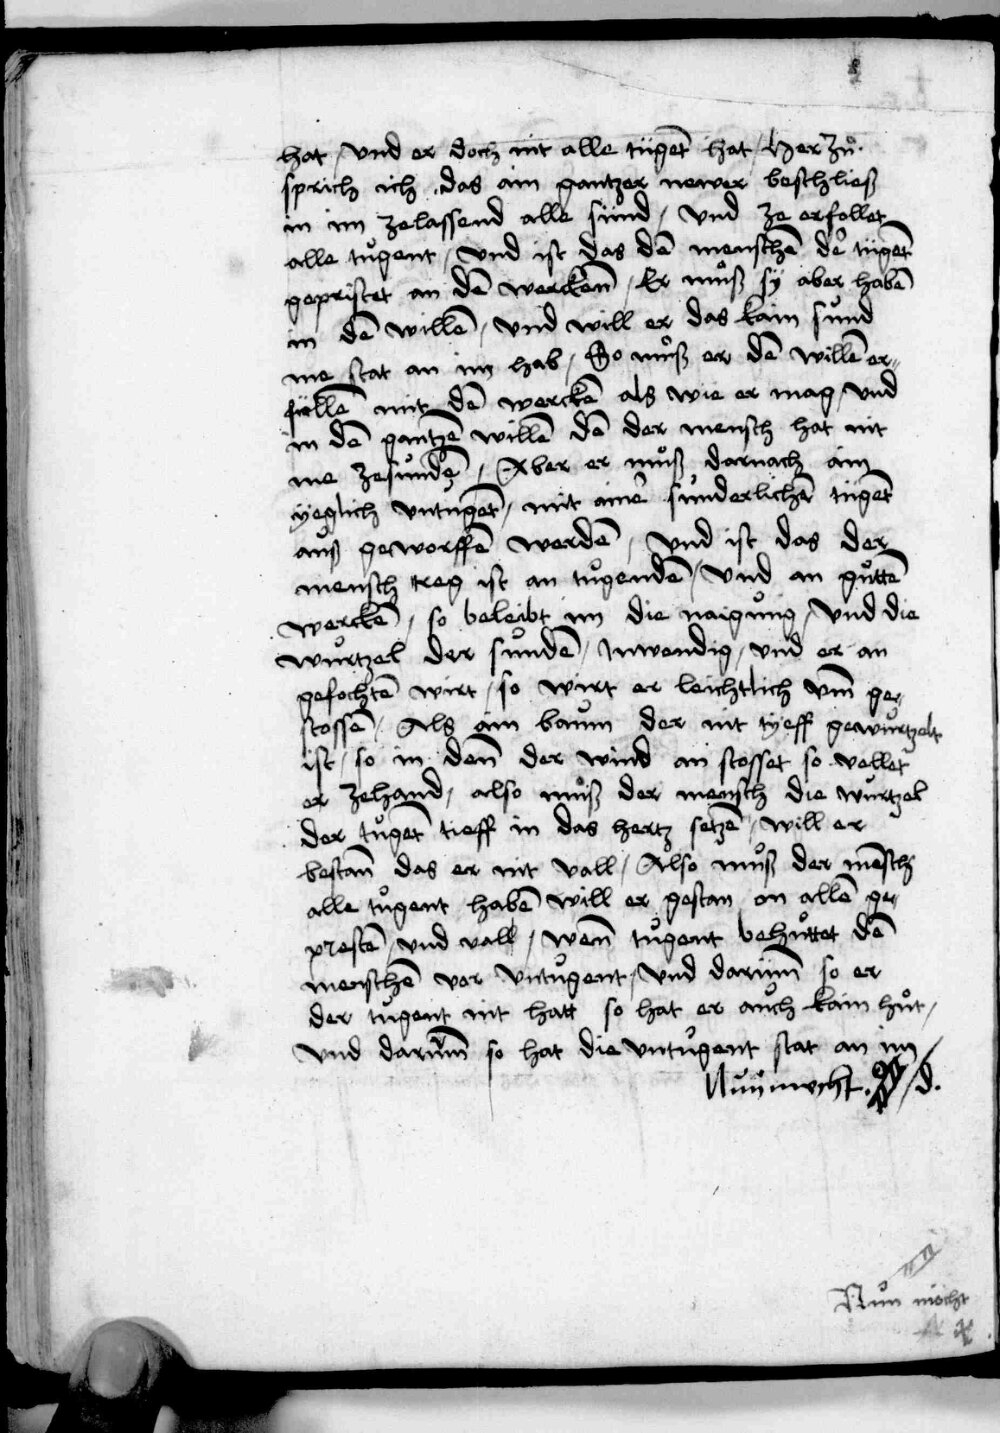 hat / vnd er doch nit alle tůgēt hat / Herzů.
sprich ich . das ain gantzer newer beschließ
in im zelassend alle sünd / vnd ze erfollet
alle tůgent / vnd ist das dē menschē dē tůgēt
gepristet an dē werckenn / Er můß sÿ aber habē
in dē willē / vnd will er das kain sünd
me stat an im hab / So můß er dē willē er⸗
füllē mit dē werckē als wie er mag / vnd
in dē gantzē willē dē der mensch hat nit
me zesündē / Aber er můß darnach ain
ÿeglich vntůgēt / mit ainē sunderlichē tůgēt
auß geworffē werdē / vnd ist das der
mensch treg ist an tůgendē / vnd an gůttē
werckē / so beleibt im die naigung / vnd die
wurtzel der sündē / Inwendig / vnd er an
gefochtē wirt / so wirt er leichtlich vm̄ ge⸗
stossē / Als ain baum der nit tÿeff gewurtzelt
ist / so in den̄ der wind an stosset so vellet
er zehand / also můß der mensch die wurtzel
der tůgēt tieff in das hertz setzē / will er
bestan̄ das er nit vall / Also můß der mēsch
alle tůgent habē will er gestan on allē ge⸗
prestē / vnd vall / wen̄ tůgent behůttet dē
menschē vor vntůgent / vnd darum̄ so er
der tůgent nit hatt so hat er auch kain hůt /
vnd darum̄ so hat die vntůgent stat an im /
Nun mecht . / d.
Nůn möcht